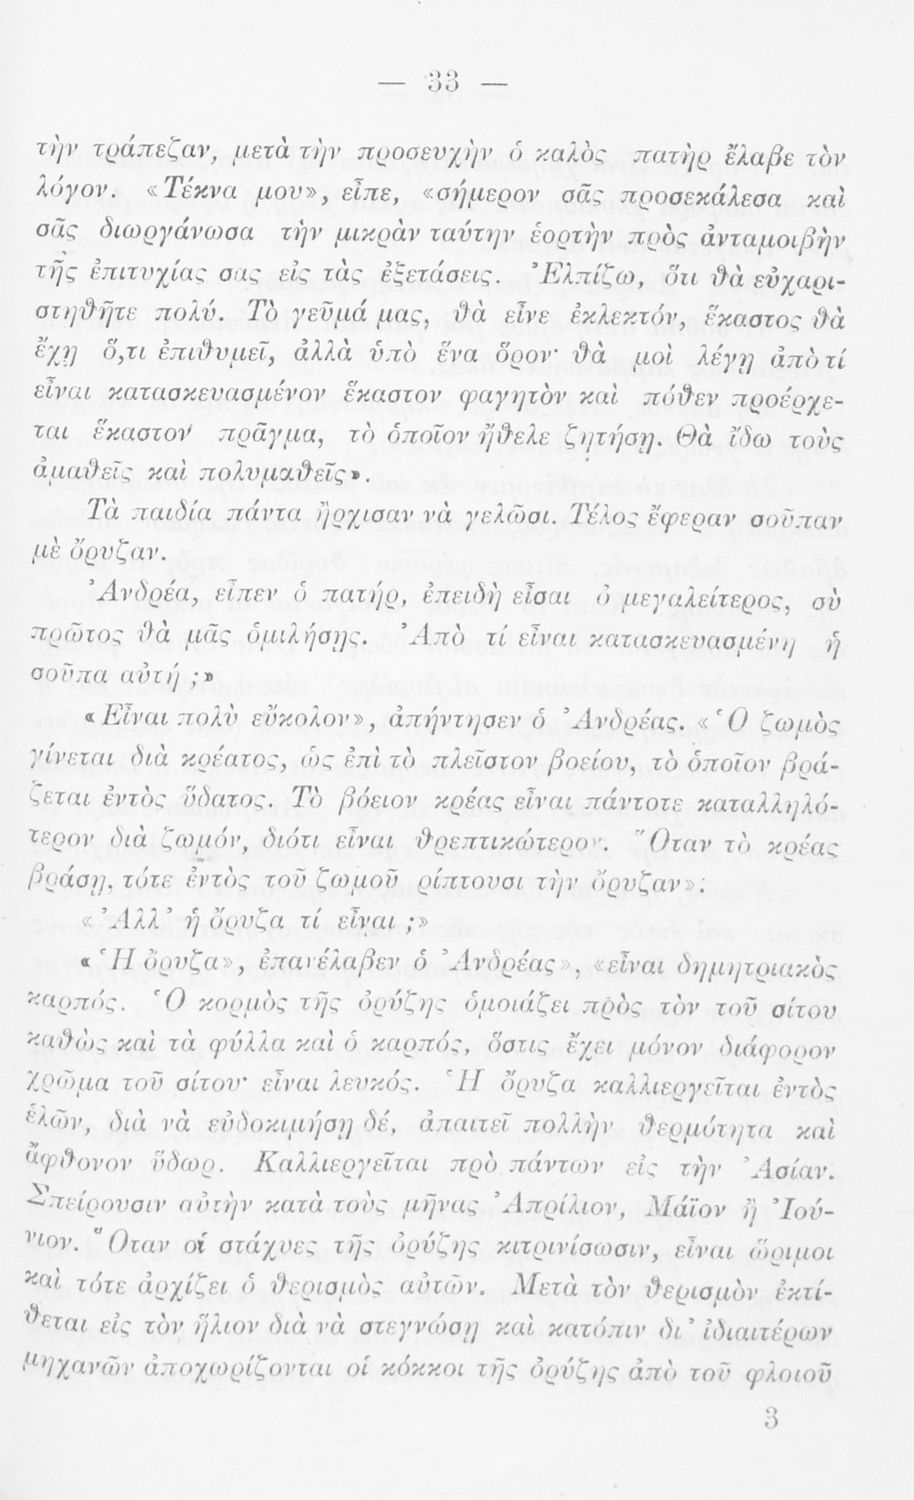 — 33 —
τὴν τράπεζαν, μετὰ τὴν προσευχὴν ὁ καλὸς πατὴρ ἔλαβε τὸν
λόγον. «Τέκνα μου», εἶπε, «σήμερον σᾶς προσεκάλεσα καὶ
σᾶς διωργάνωσα τὴν μικρὰν ταύτην ἑορτὴν πρὸς ἀνταμοιβὴν
τῆς ἐπιτυχίας σας εἰς τὰς ἐξετάσεις. Ἐλπίζω, ὅτι θὰ εὐχαρι-
στηθῆτε πολύ. Τὸ γεῦμά μας, θὰ εἶνε ἐκλεκτόν, ἕκαστος θὰ
ἔχῃ ὅ,τι ἐπιθυμεῖ, ἀλλὰ ὑπὸ ἕνα ὅρον· θὰ μοὶ λέγῃ ἀπὸ τί
εἶναι κατασκευασμένον ἕκαστον φαγητὸν καὶ πόθεν προέρχε-
ται ἕκαστον πρᾶγμα, τὸ ὁποῖον ἤθελε ζητήσῃ. Θὰ ἴδω τοὺς
ἀμαθεῖς καὶ πολυμαθεῖς».
Τὰ παιδία πάντα ἤρχισαν νὰ γελῶσι. Τέλος ἔφεραν σοῦπαν
μὲ ὄρυζαν.
Ἀνδρέα, εἶπεν ὁ πατήρ, ἐπειδὴ εἶσαι ὁ μεγαλείτερος, σὺ
πρῶτος θὰ μᾶς ὁμιλήσῃς. Ἀπὸ τί εἶναι κατασκευασμένη ἡ
σοῦπα αὐτή ;»
«Εἶναι πολὺ εὔκολον», ἀπήντησεν ὁ Ἀνδρέας. «Ὁ ζωμὸς
γίνεται διὰ κρέατος, ὡς ἐπὶ τὸ πλεῖστον βοείου, τὸ ὁποῖον βρά-
ζεται ἐντὸς ὕδατος. Τὸ βόειον κρέας εἶναι πάντοτε καταλληλό-
τερον διὰ ζωμόν, διότι εἶναι θρεπτικώτερον. Ὅταν τὸ κρέας
βράσῃ, τότε ἐντὸς τοῦ ζωμοῦ ρίπτουσι τὴν ὄρυζαν».
«Ἀλλ' ἡ ὄρυζα τί εἶναι ;»
«Ἡ ὄρυζα», ἐπανέλαβεν ὁ Ἀνδρέας», «εἶναι δημητριακὸς
καρπός. Ὁ κορμὸς τῆς ὀρύζης ὁμοιάζει πρὸς τὸν τοῦ σίτου
καθὼς καὶ τὰ φύλλα καὶ ὁ καρπός, ὅστις ἔχει μόνον διάφορον
χρῶμα τοῦ σίτου· εἶναι λευκός. Ἡ ὄρυζα καλλιεργεῖται ἐντὸς
ἑλῶν, διὰ νὰ εὐδοκιμήσῃ δέ, ἀπαιτεῖ πολλὴν θερμότητα καὶ
ἄφθονον ὕδωρ. Καλλιεργεῖται πρὸ πάντων εἰς τὴν Ἀσίαν.
Σπείρουσιν αὐτὴν κατὰ τοὺς μῆνας Ἀπρίλιον, Μάϊον ἢ Ἰού-
νιον. Ὅταν οἱ στάχυες τῆς ὀρύζης κιτρινίσωσιν, εἶναι ὥριμοι
καὶ τότε ἀρχίζει ὁ θερισμὸς αὐτῶν. Μετὰ τὸν θερισμὸν ἐκτί-
θεται εἰς τὸν ἥλιον διὰ νὰ στεγνώσῃ καὶ κατόπιν δι' ἰδιαιτέρων
μηχανῶν ἀποχωρίζονται οἱ κόκκοι τῆς ὀρύζης ἀπὸ τοῦ φλοιοῦ
3